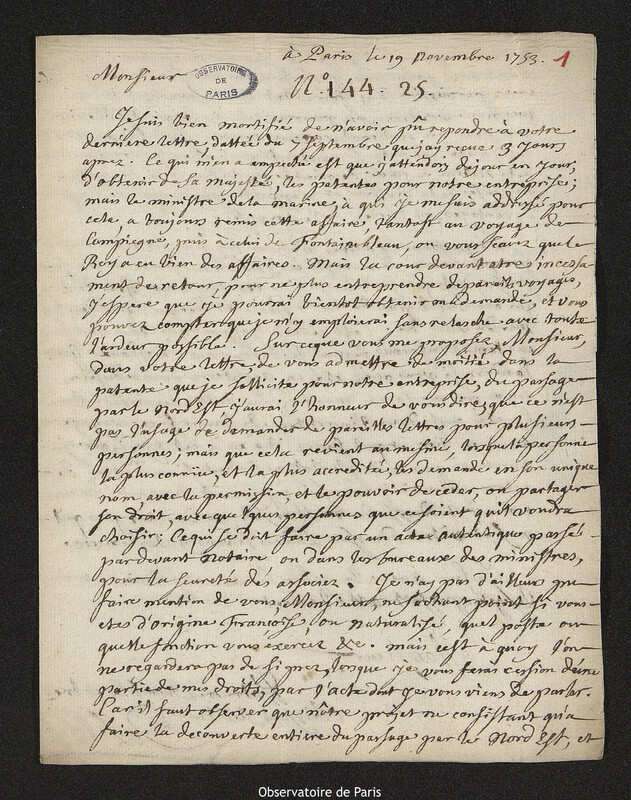 à Paris le 19 Novembre 1753. 1
Monsieur
OBSERVATOIRE
DE
PARIS
N.° 144. 25.
Je suis bien mortifié de n'avoir pu repondre à votre
derniere lettre, dattée du 7 septembre que j'ay recue 3 jours
aprez. Ce qui m'en a empeché est que j'attendois de jour en jour,
d'obtenir de sa majesté, les patentes pour notre entreprise;
mais le ministre de la marine, à qui je me suis addressé pour
cela, a toujours remis cette affaire, tantost au voyage de
Compiegne, puis à celui de Fontainebleau, ou vous sçavez que le
Roy a eu bien des affaires. Mais la cour devant etre incessa-
ment de retour, pour ne plus entreprendre de pareils voyages,
j'espere que je pourrai bientot obtenir ma demande, et vous
pouvez compter que je m'y emploierai sans relasche avec toute
l'ardeur possible. Sur ce que vous me proposez, Monsieur,
dans votre lettre, de vous admettre de moitié dans la
patente que je sollicite pour notre entreprise, du passage
par le Nord Est, j'aurai l'honneur de vous dire, que ce n'est
pas l'usage de demander de pareilles lettres pour plusieurs
personnes; mais que cela revient au mesme, lorsque la personne
la plus connüe, et la plus accreditée, les demande en son unique
nom avec la permission, et le pouvoir de ceder, ou partager
son droit, avec quelques personnes que ce soient qu'il voudra
choisir; Ce qui se doit faire par un acte autentique passé
par devant Notaire ou dans les bureaux des ministres,
pour la seureté des associez. Je n'ay pas d'ailleur pu
faire mention de vous, Monsieur, ne sachant point si vous
etes d'origine Francoise, ou naturalisé, quel poste ou
quelle fonction vous exercez &c. mais c'est à quoy l'on
ne regardera pas de si prez, lorsque je vous ferai cession d'une
partie de mes droits, par l'acte dont je vous viens de parler.
Car il faut observer que nôtre projet ne consistant qu'a
faire la decouverte entiere du passage par le Nord Est, et
Observatoire de Paris